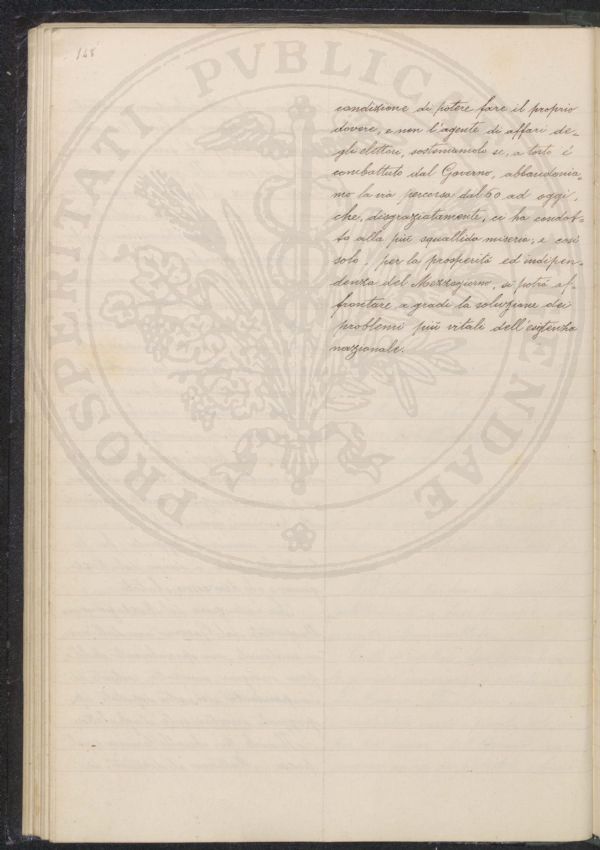 148
condizione di potere fare il proprio
dovere, e non l'agente di affari de-
gli elettori, sosteniamolo se, a torto è
combattuto dal Governo, abbandonia
mo la via percorsa dal 60 ad oggi,
che, disgraziatamente, ci ha condot-
to alla più squallida miseria; e così
solo, per la prosperità ed indipen-
denza del Mezzogiorno, si potrà af-
frontare a gradi la soluzione dei
problemi più vitali dell'esistenza
nazionale.
PROSPERITATI PVBLICAE AVGENDAE